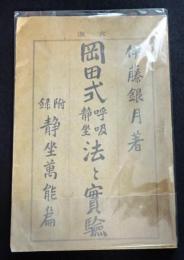 伊藤銀月著
岡田式呼吸静坐法と實驗
附録 静坐萬能篇